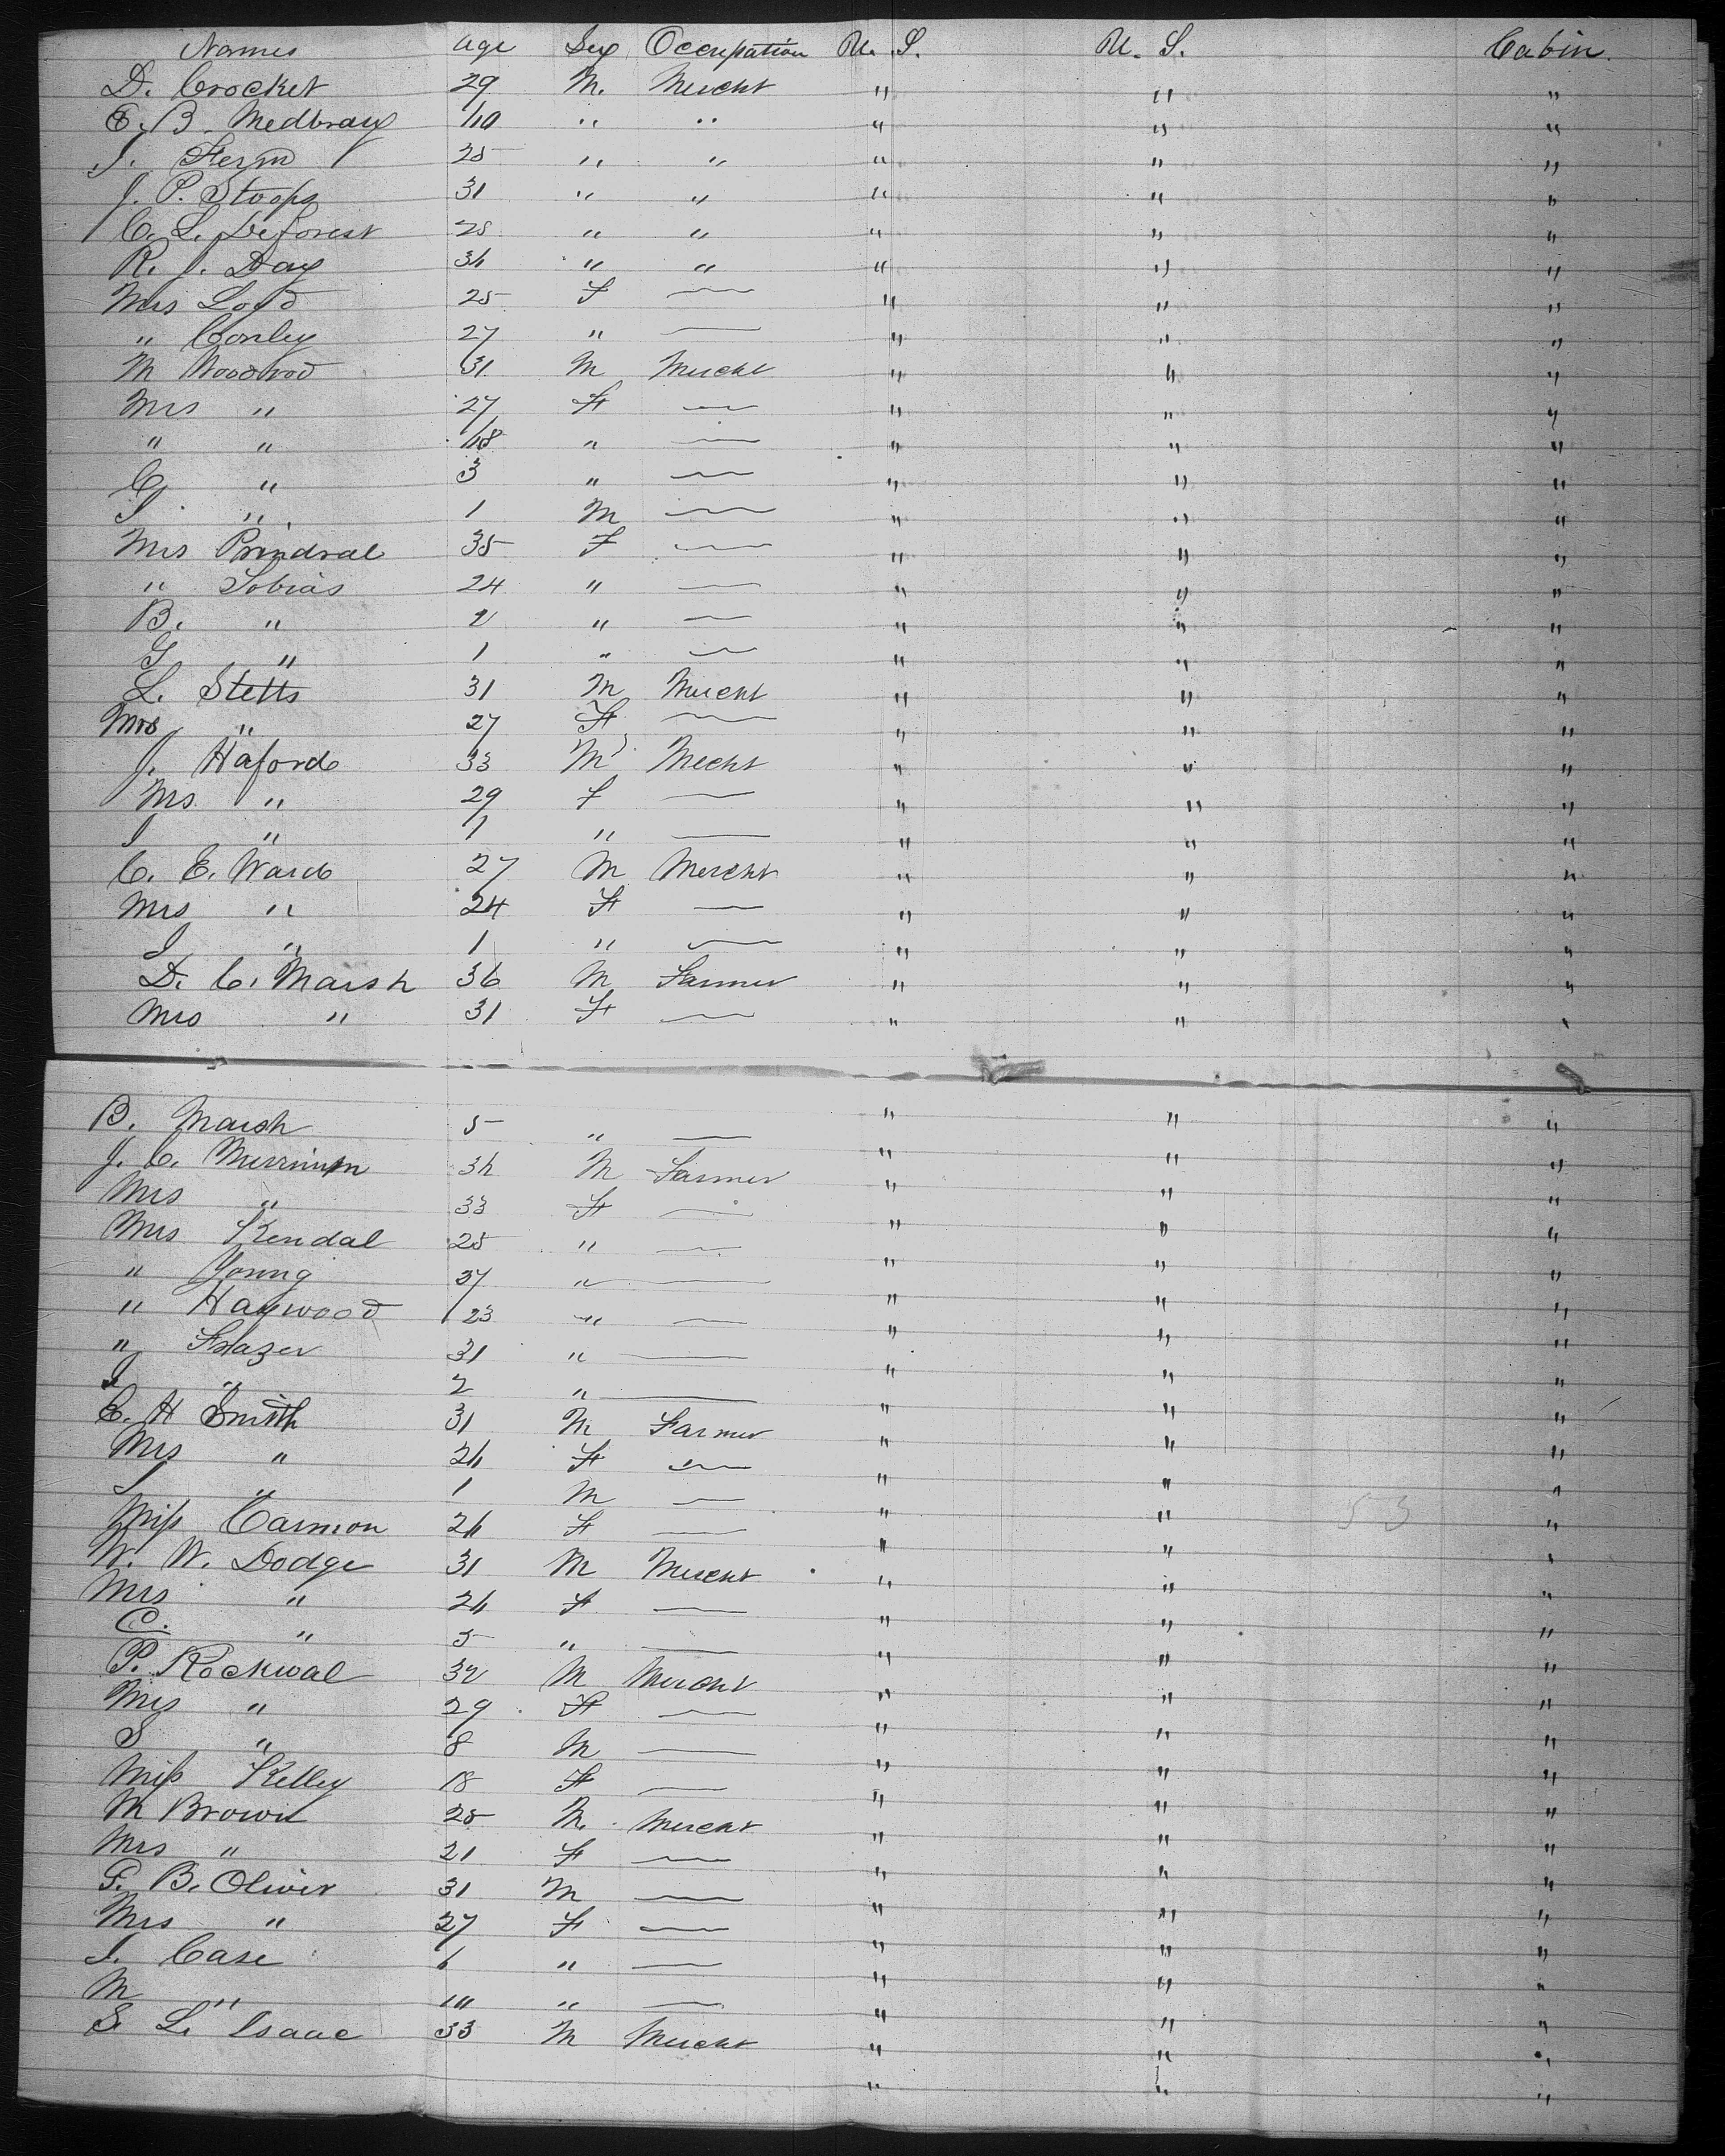 Names age Sex Occupation U. S. U. S. Cabin.
D. Crocket 29 M. Mercht " " "
E. B. Medbray 40 " " " " "
J. 25 " " " " "
J. P. Stoops 31 " " " " "
C. L. Deforest 28 " " " " "
R. J. Day 34 " " " " "
Mrs Loyd 25 F — " " "
" Conley 27 " — " " "
M Woodwod 31 M Mercht " " "
Mrs " 27 F — " " "
" " 48 " — " " "
C " 3 " — " " "
I " 1 M — " " "
Mrs Prindval 35 F — " " "
" Tobias 24 " — " " "
B. " 2 " — " " "
G " 1 " — " " "
L. Stetts 31 M Mercht " " "
Mrs " 27 F — " " "
J. Haford 33 M Mecht " " "
Mrs " 29 F — " " "
I " 1 " — " " "
C. E. Ward 27 M Mercht " " "
Mrs " 24 F — " " "
I " 1 " — " " "
D. C. Marsh 36 M Farmer " " "
Mrs " 31 F — " " "
B. Marsh 5 " — " " "
J. C. Merrimm 34 M Farmer " " "
Mrs " 33 F — " " "
Mrs Kendal 25 " — " " "
" Young 37 " — " " "
" Haywood 23 " — " " "
" Frazer 31 " — " " "
I " 2 " — " " "
E. H Smith 31 M Farmer " " "
Mrs " 24 F — " " "
I " 1 M — " " "
Miss Carmon 24 F — " 53 " "
W. W. Dodge 31 M Mercht " " "
Mrs " 24 F — " " "
C. " 5 " — " " "
P. Rockwal 32 M Mercht " " "
Mrs " 29 F — " " "
S " 8 M — " " "
Miss Kelley 18 F — " " "
M Brown 28 M. Mercht " " "
Mrs " 21 F — " " "
G. B. Oliver 31 M — " " "
Mrs " 27 F — " " "
I. Case 6 " — " " "
M " " — " " "
S. L. Isaac 33 M Mercht " " "
" " "